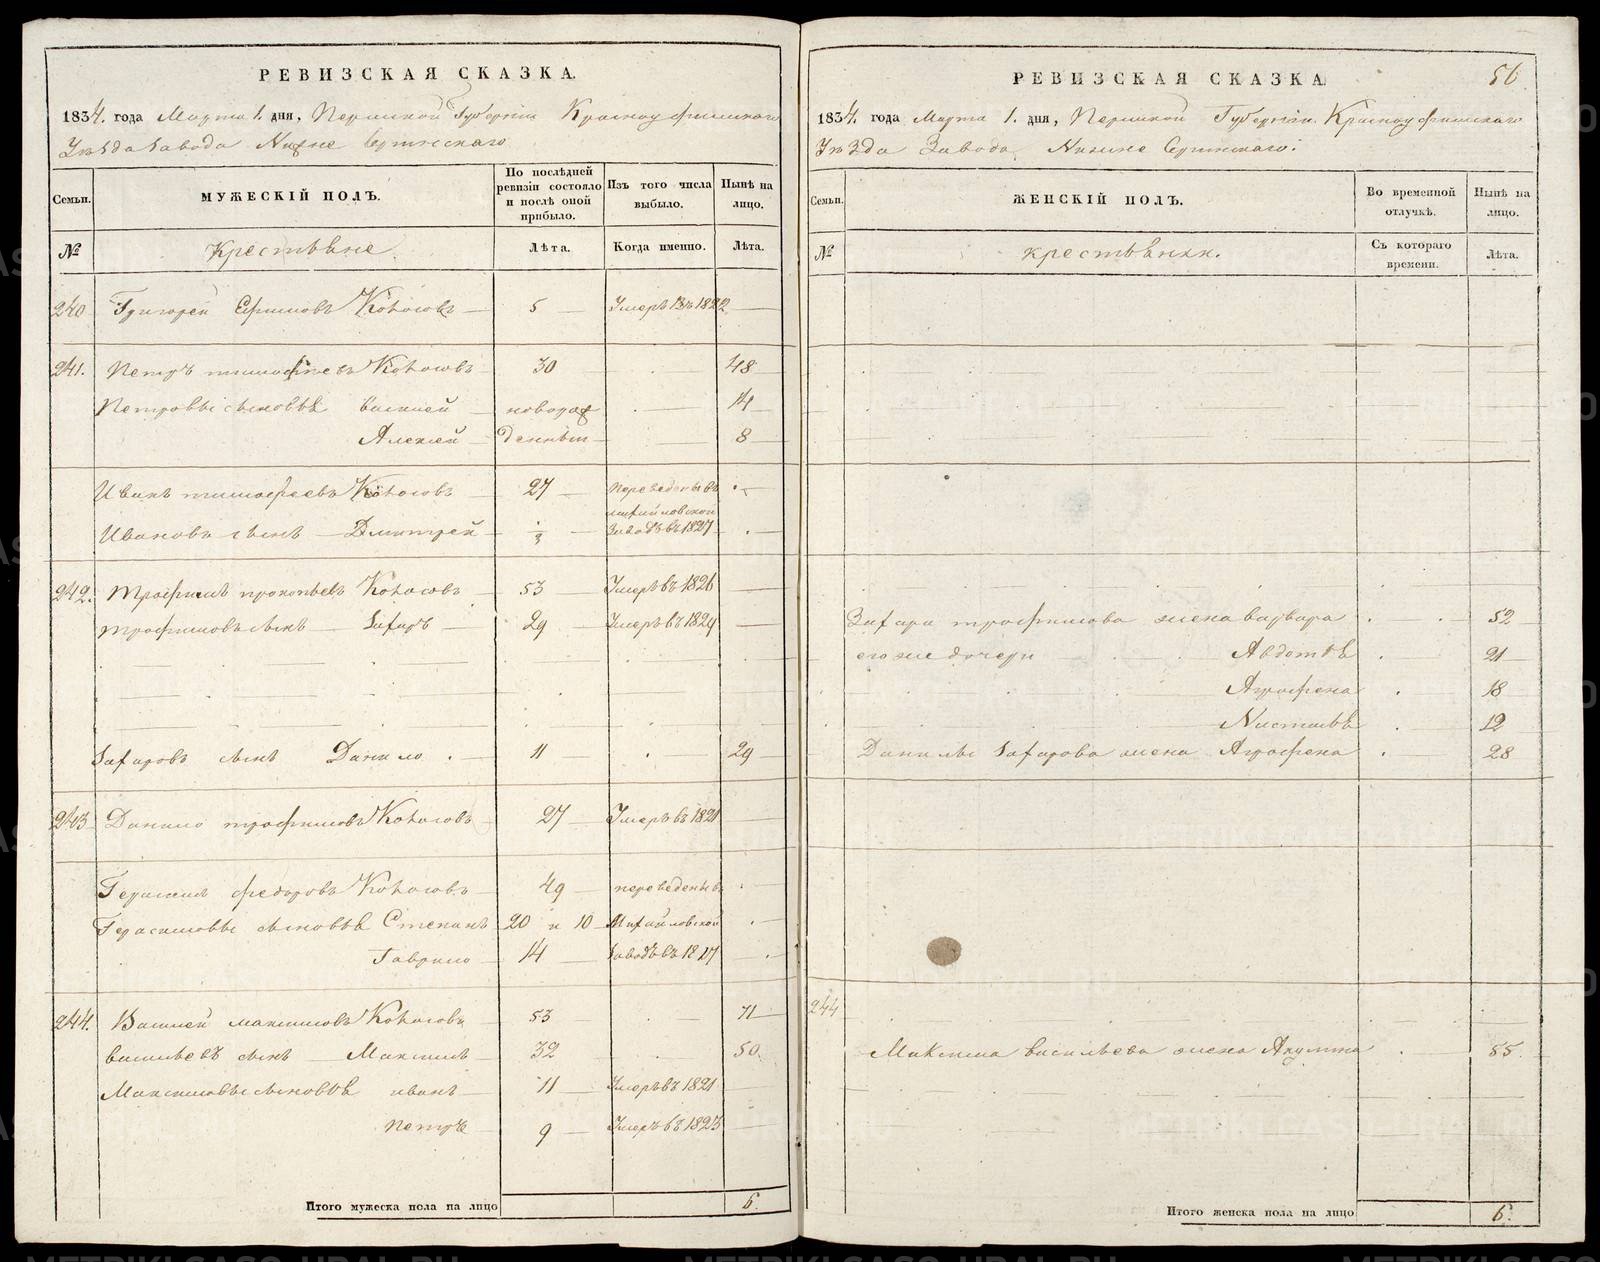 РЕВИЗСКАЯ СКАЗКА.
1834. года Марта 1. дня, Пермской Губернїи Красноуфимскаго
Уѣзда Завода Нижне Сергинскаго
Семьи. МУЖЕСКІЙ ПОЛЪ. По послѣдней ревизіи состояло и послѣ оной прибыло. Изъ того числа выбыло. Нынѣ на лицо.
№ Крестьяне. Лѣта. Когда именно. Лѣта.
240 Григорей Ефимовъ 5 Умеръ въ 1822
241. Петръ тимофѣевъ 30 48
Петровы сыновья Василей новорож 14
Алексей денныи 8
Иванъ тимофеевъ 27 Переведены въ
михайловской
Ивановъ сынъ Дмитрей Заводъ въ 1827
242. Трофимъ прокопьевъ 53 Умеръ въ 1826
трофимовъ сынъ Захаръ 29 Умеръ въ 1829
Захаровъ сынъ Данило 11 29
243 Данило трофимовъ 27 Умеръ въ 1821
Герасимъ федоровъ 49 переведены въ
Герасимовы сыновья Степанъ 20 и 10 Михайловской
Гаврило 14 Заводъ въ 1817
244. Василей максимовъ 53 71
васильевъ сынъ Максимъ 32 50.
Максимовы сыновья иванъ 11 Умеръ въ 1821
петръ 9 Умеръ въ 1823
Итого мужеска пола на лицо 6.
РЕВИЗСКАЯ СКАЗКА. 56
1834. года Марта 1. дня, Пермской Губернїи Красноуфимскаго
Уѣзда Завода Нижне Сергинскаго.
Семьи. ЖЕНСКІЙ ПОЛЪ. Во временной отлучкѣ. Нынѣ на лицо.
№ крестьянки. Съ котораго времени. Лѣта.
Захара трофимова жена варвара 52
его же дочери Авдотья 21
Агрофена 18
Настасья 12
Данилы Захарова жена Агрофена 28
244
Максима васильева жена Акулина 55.
Итого женска пола на лицо 6.